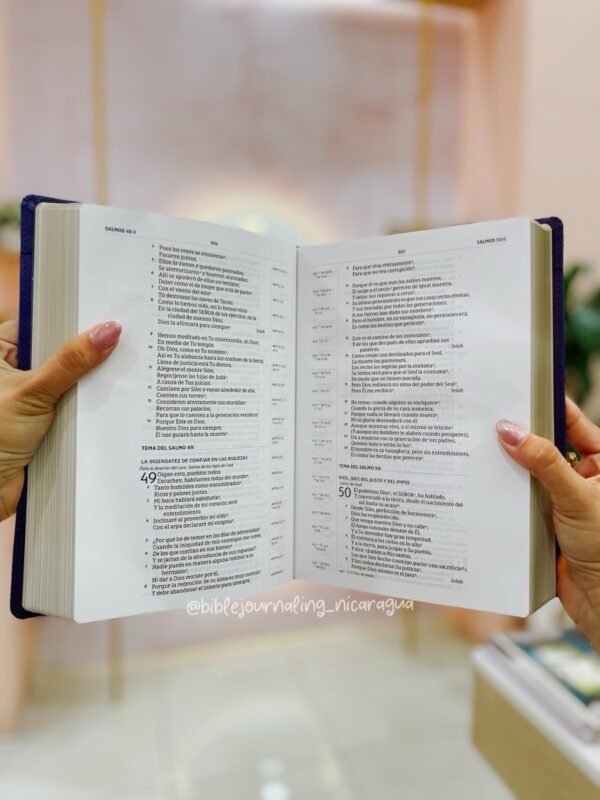 SALMOS 48:4
906
4 Pues los reyes se reunieron,
Pasaron juntos.
5 Ellos la vieron y quedaron pasmados;
Se aterrorizaron y huyeron alarmados.
6 Allí se apoderó de ellos un temblor;
Dolor como el de mujer que está de parto.
7 Con el viento del este
Tú destrozas las naves de Tarsis.
8 Como lo hemos oído, así lo hemos visto
En la ciudad del SEÑOR de los ejércitos, en la
ciudad de nuestro Dios;
Dios la afirmará para siempre.
Selah
9 Hemos meditado en Tu misericordia, oh Dios,
En medio de Tu templo.
10 Oh Dios, como es Tu nombre,
Así es Tu alabanza hasta los confines de la tierra;
Llena de justicia está Tu diestra.
11 Alégrese el monte Sión,
Regocíjense las hijas de Judá,
A causa de Tus juicios.
12 Caminen por Sión y vayan alrededor de ella;
Cuenten sus torres;
13 Consideren atentamente sus murallas,
Recorran sus palacios,
Para que lo cuenten a la generación venidera.
14 Porque Este es Dios,
Nuestro Dios para siempre;
Él nos guiará hasta la muerte.
TEMA DEL SALMO 49:
LA INSENSATEZ DE CONFIAR EN LAS RIQUEZAS
Para el director del coro. Salmo de los hijos de Coré.
49 Oigan esto, pueblos todos;
Escuchen, habitantes todos del mundo,
2 Tanto humildes como encumbrados,
Ricos y pobres juntos.
3 Mi boca hablará sabiduría,
Y la meditación de mi corazón será
entendimiento.
4 Inclinaré al proverbio mi oído,
Con el arpa declararé mi enigma.
5 ¿Por qué he de temer en los días de adversidad
Cuando la iniquidad de mis enemigos me rodee,
6 De los que confían en sus bienes
Y se jactan de la abundancia de sus riquezas?
7 Nadie puede en manera alguna redimir a su
hermano,
Ni dar a Dios rescate por él,
8 Porque la redención de su alma es muy costosa,
Y debe abandonar el intento para siempre,
907
SALMOS 50:6
9 Para que viva eternamente,
Para que no vea corrupción.
10 Porque él ve que aun los sabios mueren;
El torpe y el necio perecen de igual manera,
Y dejan sus riquezas a otros.
11 Su íntimo pensamiento es que sus casas serán eternas,
Y sus moradas por todas las generaciones;
A sus tierras han dado sus nombres.
12 Pero el hombre, en su vanagloria, no permanecerá;
Es como las bestias que perecen.
13 Este es el camino de los insensatos,
Y de los que después de ellos aprueban sus
palabras.
Selah
14 Como ovejas son destinados para el Seol,
La muerte los pastoreará,
Los rectos los regirán por la mañana;
Su forma será para que el Seol la consuma,
De modo que no tienen morada.
15 Pero Dios redimirá mi alma del poder del Seol,
Pues Él me recibirá.
Selah
16 No temas cuando alguien se enriquece,
Cuando la gloria de su casa aumenta;
17 Porque nada se llevará cuando muera;
Ni su gloria descenderá con él.
18 Aunque mientras viva, a sí mismo se felicite
(Y aunque los hombres te alaben cuando prosperes),
19 Irá a reunirse con la generación de sus padres,
Quienes nunca verán la luz.
20 El hombre en su vanagloria, pero sin entendimiento,
Es como las bestias que perecen.
TEMA DEL SALMO 50:
DIOS, JUEZ DEL JUSTO Y DEL IMPÍO
Salmo de Asaf.
50 El poderoso Dios, el SEÑOR, ha hablado,
Y convocado a la tierra, desde el nacimiento del
sol hasta su ocaso.
2 Desde Sión, perfección de hermosura,
Dios ha resplandecido.
3 Que venga nuestro Dios y no calle;
El fuego consume delante de Él,
Y a Su derredor hay gran tempestad.
4 Él convoca a los cielos en lo alto
Y a la tierra, para juzgar a Su pueblo,
5 Y dice: «Junten a Mis santos,
Los que han hecho conmigo pacto con sacrificio».
6 Y los cielos declaran Su justicia,
Porque Dios mismo es el juez.
Selah
@biblejournaling_nicaragua